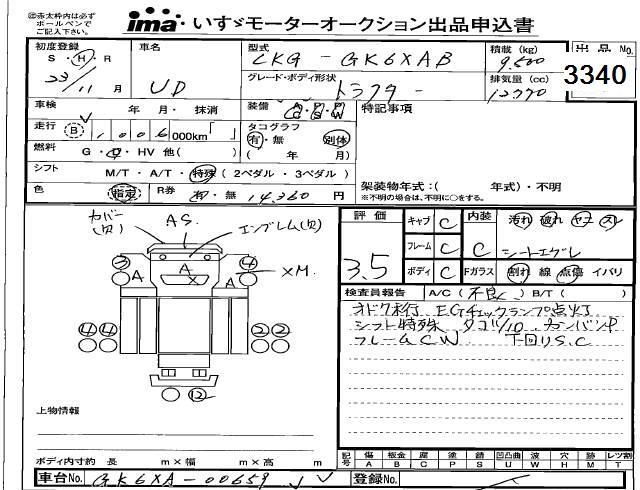 ㊟赤太枠内は必ず
ボールペンで
ご記入下さい。
ima いすゞモーターオークション出品申込書
初度登録
S・H・R
23/11 月
車名
UD
型式
LKG-GK6XAB
グレード・ボディ形状
トラクター
積載 (kg)
9,500
排気量 (cc)
12,770
出品No.
3340
車検 年 月・抹消
装備 A/C P/S P/W
特記事項
走行 B 1,006,000km「 」
タコグラフ
有・無 別体
( 年 月)
燃料 G・D・HV 他( )
シフト M/T・A/T・特殊 ( 2ペダル・3ペダル )
色 指定 R券 有・無 14,360 円
架装物年式:( 年式)・不明
※不明の場合は、不明に○をする。
カバー(欠)
A S.
エンブレム(欠)
③ ④
A A A
X
XM.
④④ ②②
⑫
評価
3.5
キャブ C
フレーム C
ボディ C
内装 C
汚れ 破れ ヤニ スレ
シートエグレ
Fガラス 割れ 線 点傷 イバリ
検査員報告 A/C ( 不良 ) B/T ( )
オドク末行 EGチェックランプ点灯
シフト特殊 タコソ/10.カンバン中
フレームCW 下回りS.C
上物情報
ボディ内寸約 長 m×幅 m×高 m
記号 傷 板金 座 塗 錆 凹凸曲 波 穴 跡 レツ 割
A B C P S U W H M T
車台No. GK6XA-00659
登録No.